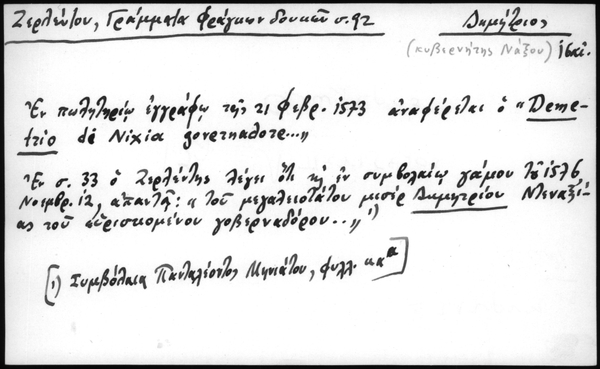 Ζερλέντου, Γράμματα Φράγκων δουκῶν σ. 92
Δημήτριος
(κυβερνήτης Νάξου) ιϛʹ αἰ.
Ἐν πωλητηρίῳ ἐγγράφῳ τῆς 21 Φεβρ. 1573 ἀναφέρεται ὁ "Deme-
trio de Nixia governadore...„
Ἐν σ. 33 ὁ Ζερλέντης λέγει ὅτι κ ἐν συμβολαίῳ γάμου τοῦ 1576
Νοεμβρ. 12, ἀπαντᾷ: "τοῦ μεγαλειοτάτου μισέρ Δημητρίου Ντεναξί-
ας τοῦ εὑρισκομένου γοβερναδόρου..„ ¹)
[1) Συμβόλαια Πανταλέοντος Μηνιάτου, φυλλ. κα^α]